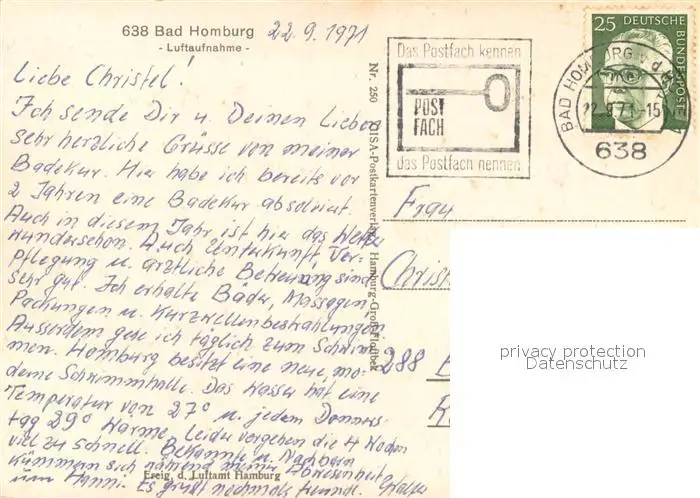 638 Bad Homburg 22.9.1971
- Luftaufnahme -
Liebe Christel!
Ich sende Dir u. Deinen Lieben
sehr herzliche Grüsse von meiner
Badekur. Hier habe ich bereits vor
2 Jahren eine Badekur absolviert.
Auch in diesem Jahr ist hier das Wetter
wunderschön. Auch Unterkunft, Ver-
pflegung u. ärztliche Betreuung sind
sehr gut. Ich erhalte Bäder, Massagen,
Packungen u. Kurzwellenbestrahlungen
Ausserdem gehe ich täglich zum Schwim-
men. Homburg besitzt eine neue, mo-
derne Schwimmhalle. Das Wasser hat eine
Temperatur von 27° u. jedem Donners-
tag 29° Wärme. Leider vergehen die 4 Wochen
viel zu schnell. Bekannte u. Nachbarn
kümmern sich während meiner Abwesenheit
um Hanni. Es grüßt nochmals freundl. Walter
Freig. d. Luftamt Hamburg
Nr. 250
CISA-Postkartenverlag Hamburg-Groß Flottbek
Das Postfach kennen
POST
FACH
das Postfach nennen
BAD HOMBURG v d H
22.9.71-15
638
25 DEUTSCHE
BUNDESPOST
Frau
Christ
288 B
privacy protection
Datenschutz